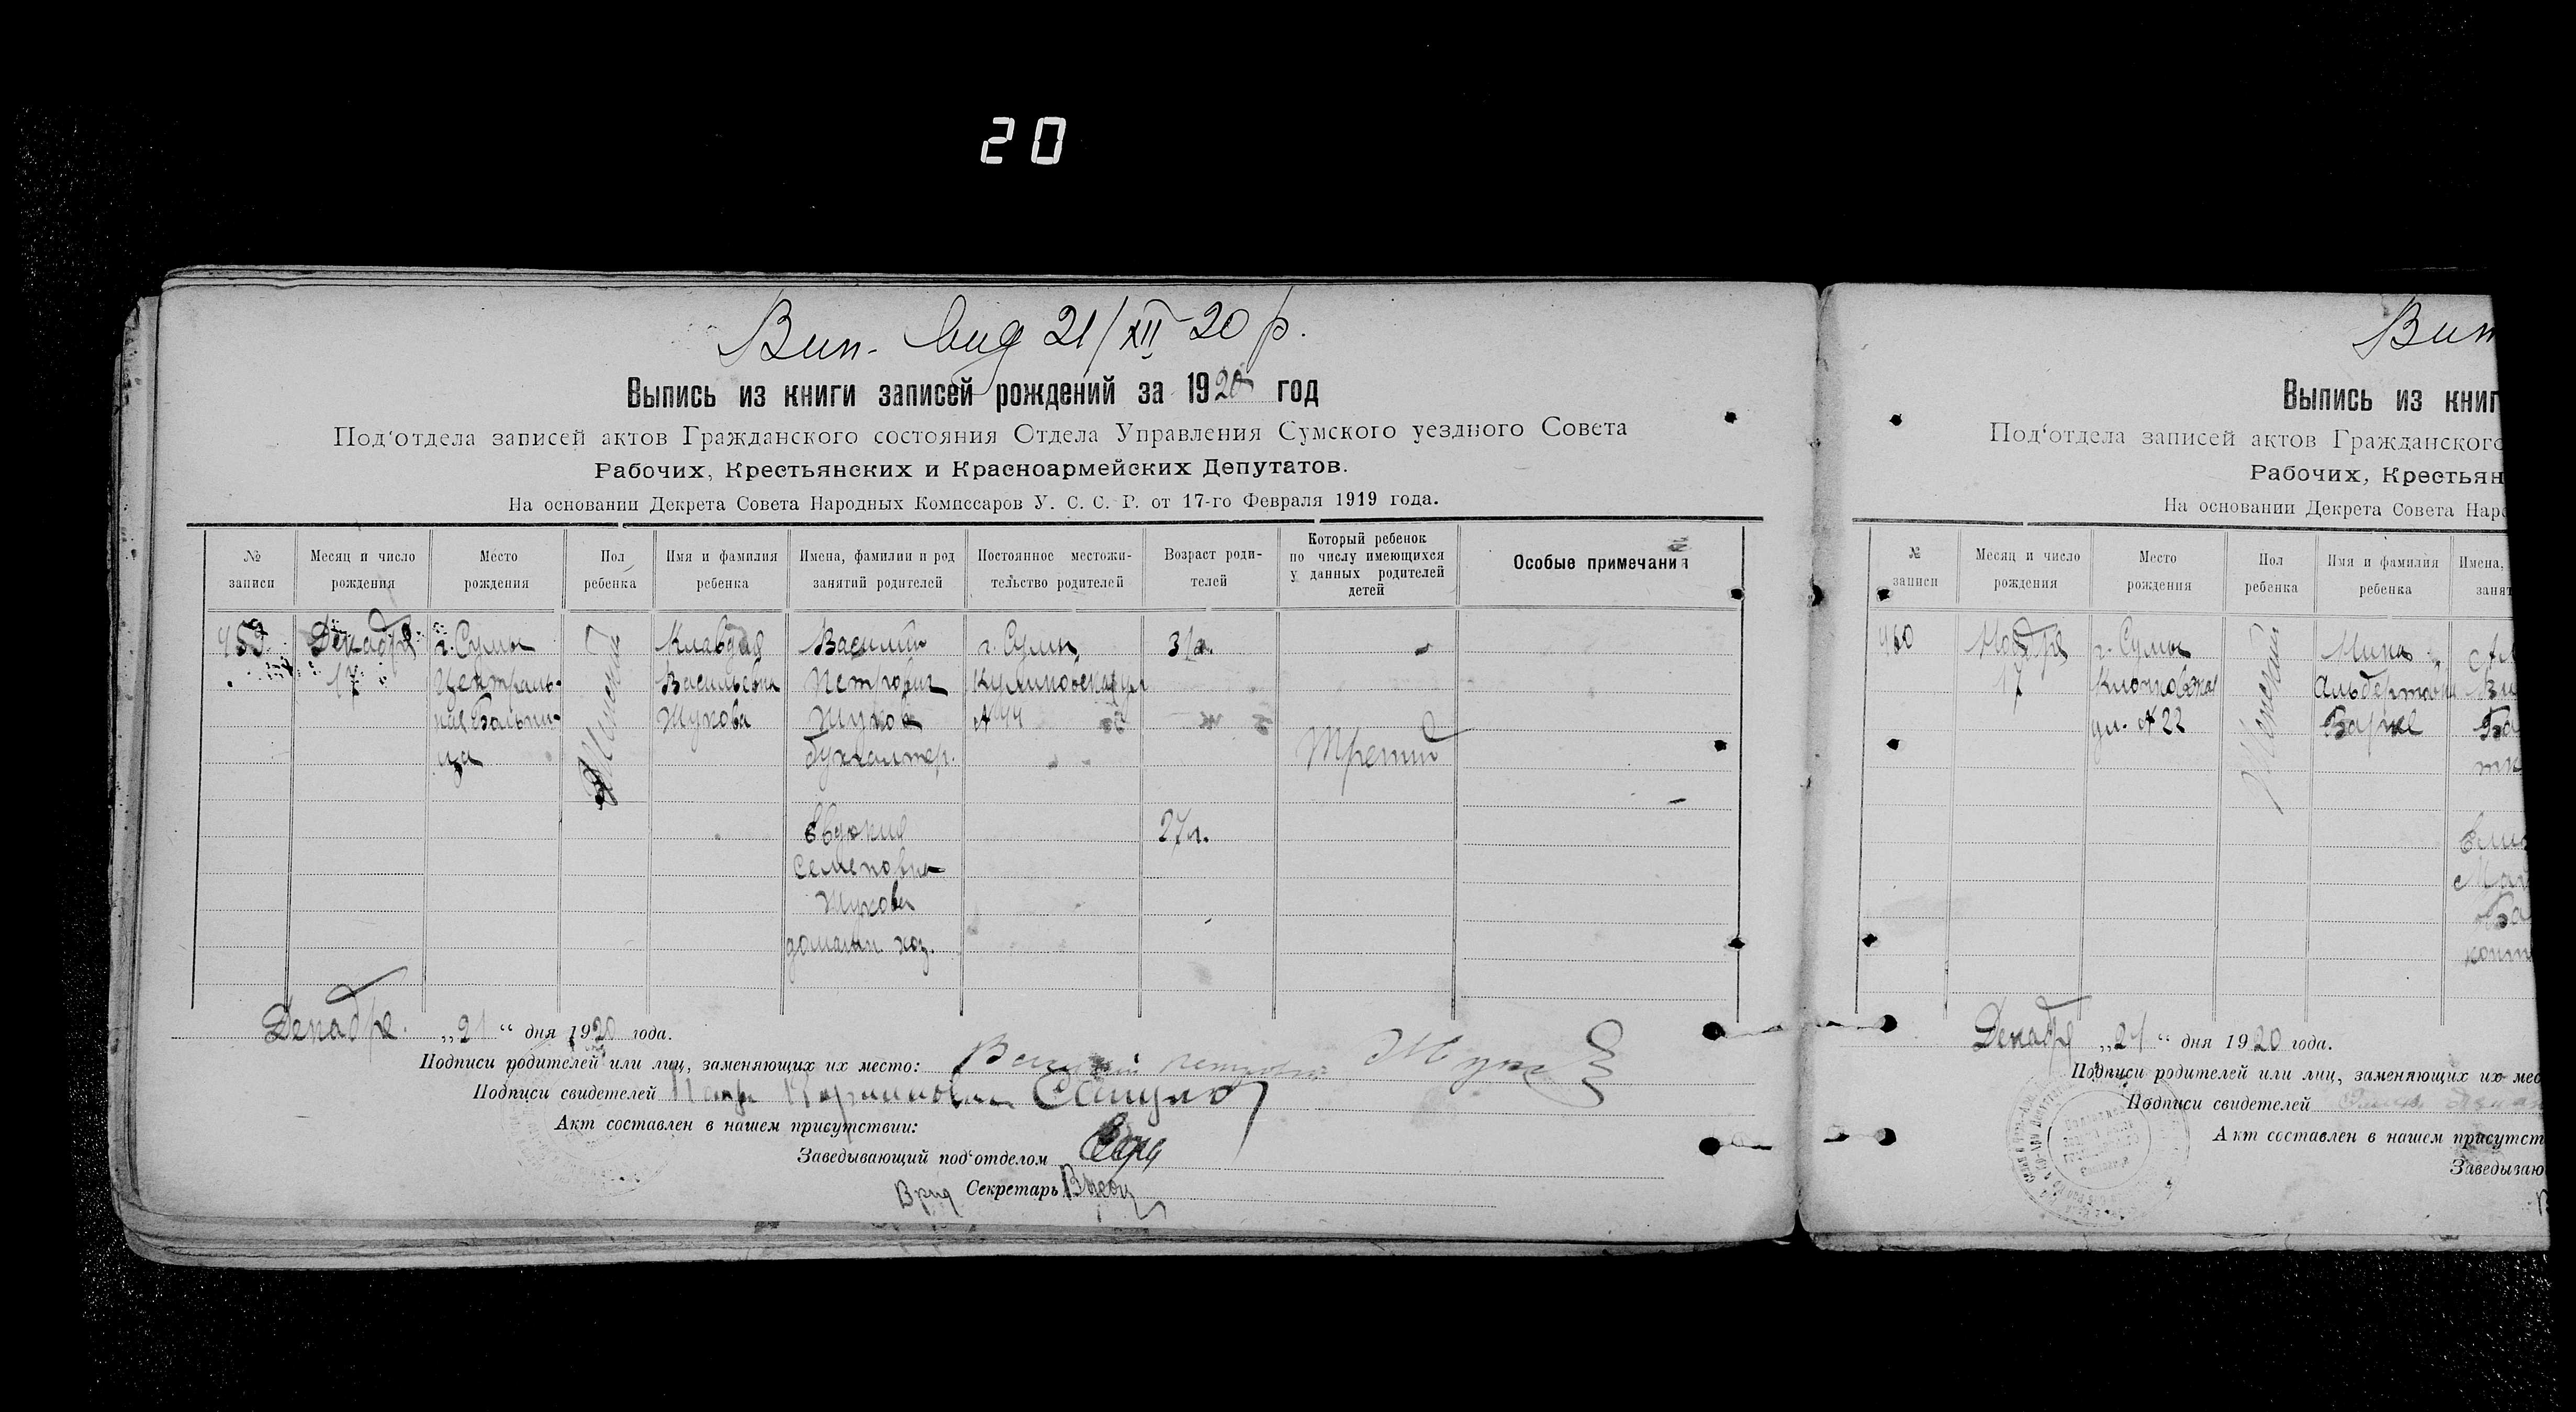 20
Вип. вид 21/XII 20 р.
Выпись из книги записей рождений за 1920 год
Под'отдела записей актов Гражданского состояния Отдела Управления Сумского уездного Совета
Рабочих, Крестьянских и Красноармейских Депутатов.
На основании Декрета Совета Народных Комиссаров У. С. С. Р. от 17-го Февраля 1919 года.
№ записи
Месяц и число рождения
Место рождения
Пол ребенка
Имя и фамилия ребенка
Имена, фамилии и род занятий родителей
Постоянное местожительство родителей
Возраст родителей
Который ребенок по числу имеющихся у данных родителей детей
Особые примечания
959
Декабря
17
г. Сумы
Централь-
ная Больни-
ца
Женский
Клавдия
Васильевна
Жукова
Василий
Петрович
Жуков
бухгалтер.
Евдокия
Семеновна
Жукова
домашн. хоз.
г. Сумы,
№ 44
31 г.
27 л.
Третий
Декабря „21“ дня 1920 года.
Подписи родителей или лиц, заменяющих их место: Василий Петрович Жуков
Подписи свидетелей
Акт составлен в нашем присутствии:
Заведывающий под'отделом
Врид Секретарь
Вип
Выпись из книг
Под'отдела записей актов Гражданского
Рабочих, Крестьян
На основании Декрета Совета Наро
№ записи
Месяц и число рождения
Место рождения
Пол ребенка
Имя и фамилия ребенка
Имена,
занят
960
Ноября
17
г. Сумы
ул. № 22
Женский
Декабря „21“ дня 1920 года.
Подписи родителей или лиц, заменяющих их мес
Подписи свидетелей
Акт составлен в нашем присутст
Заведываю